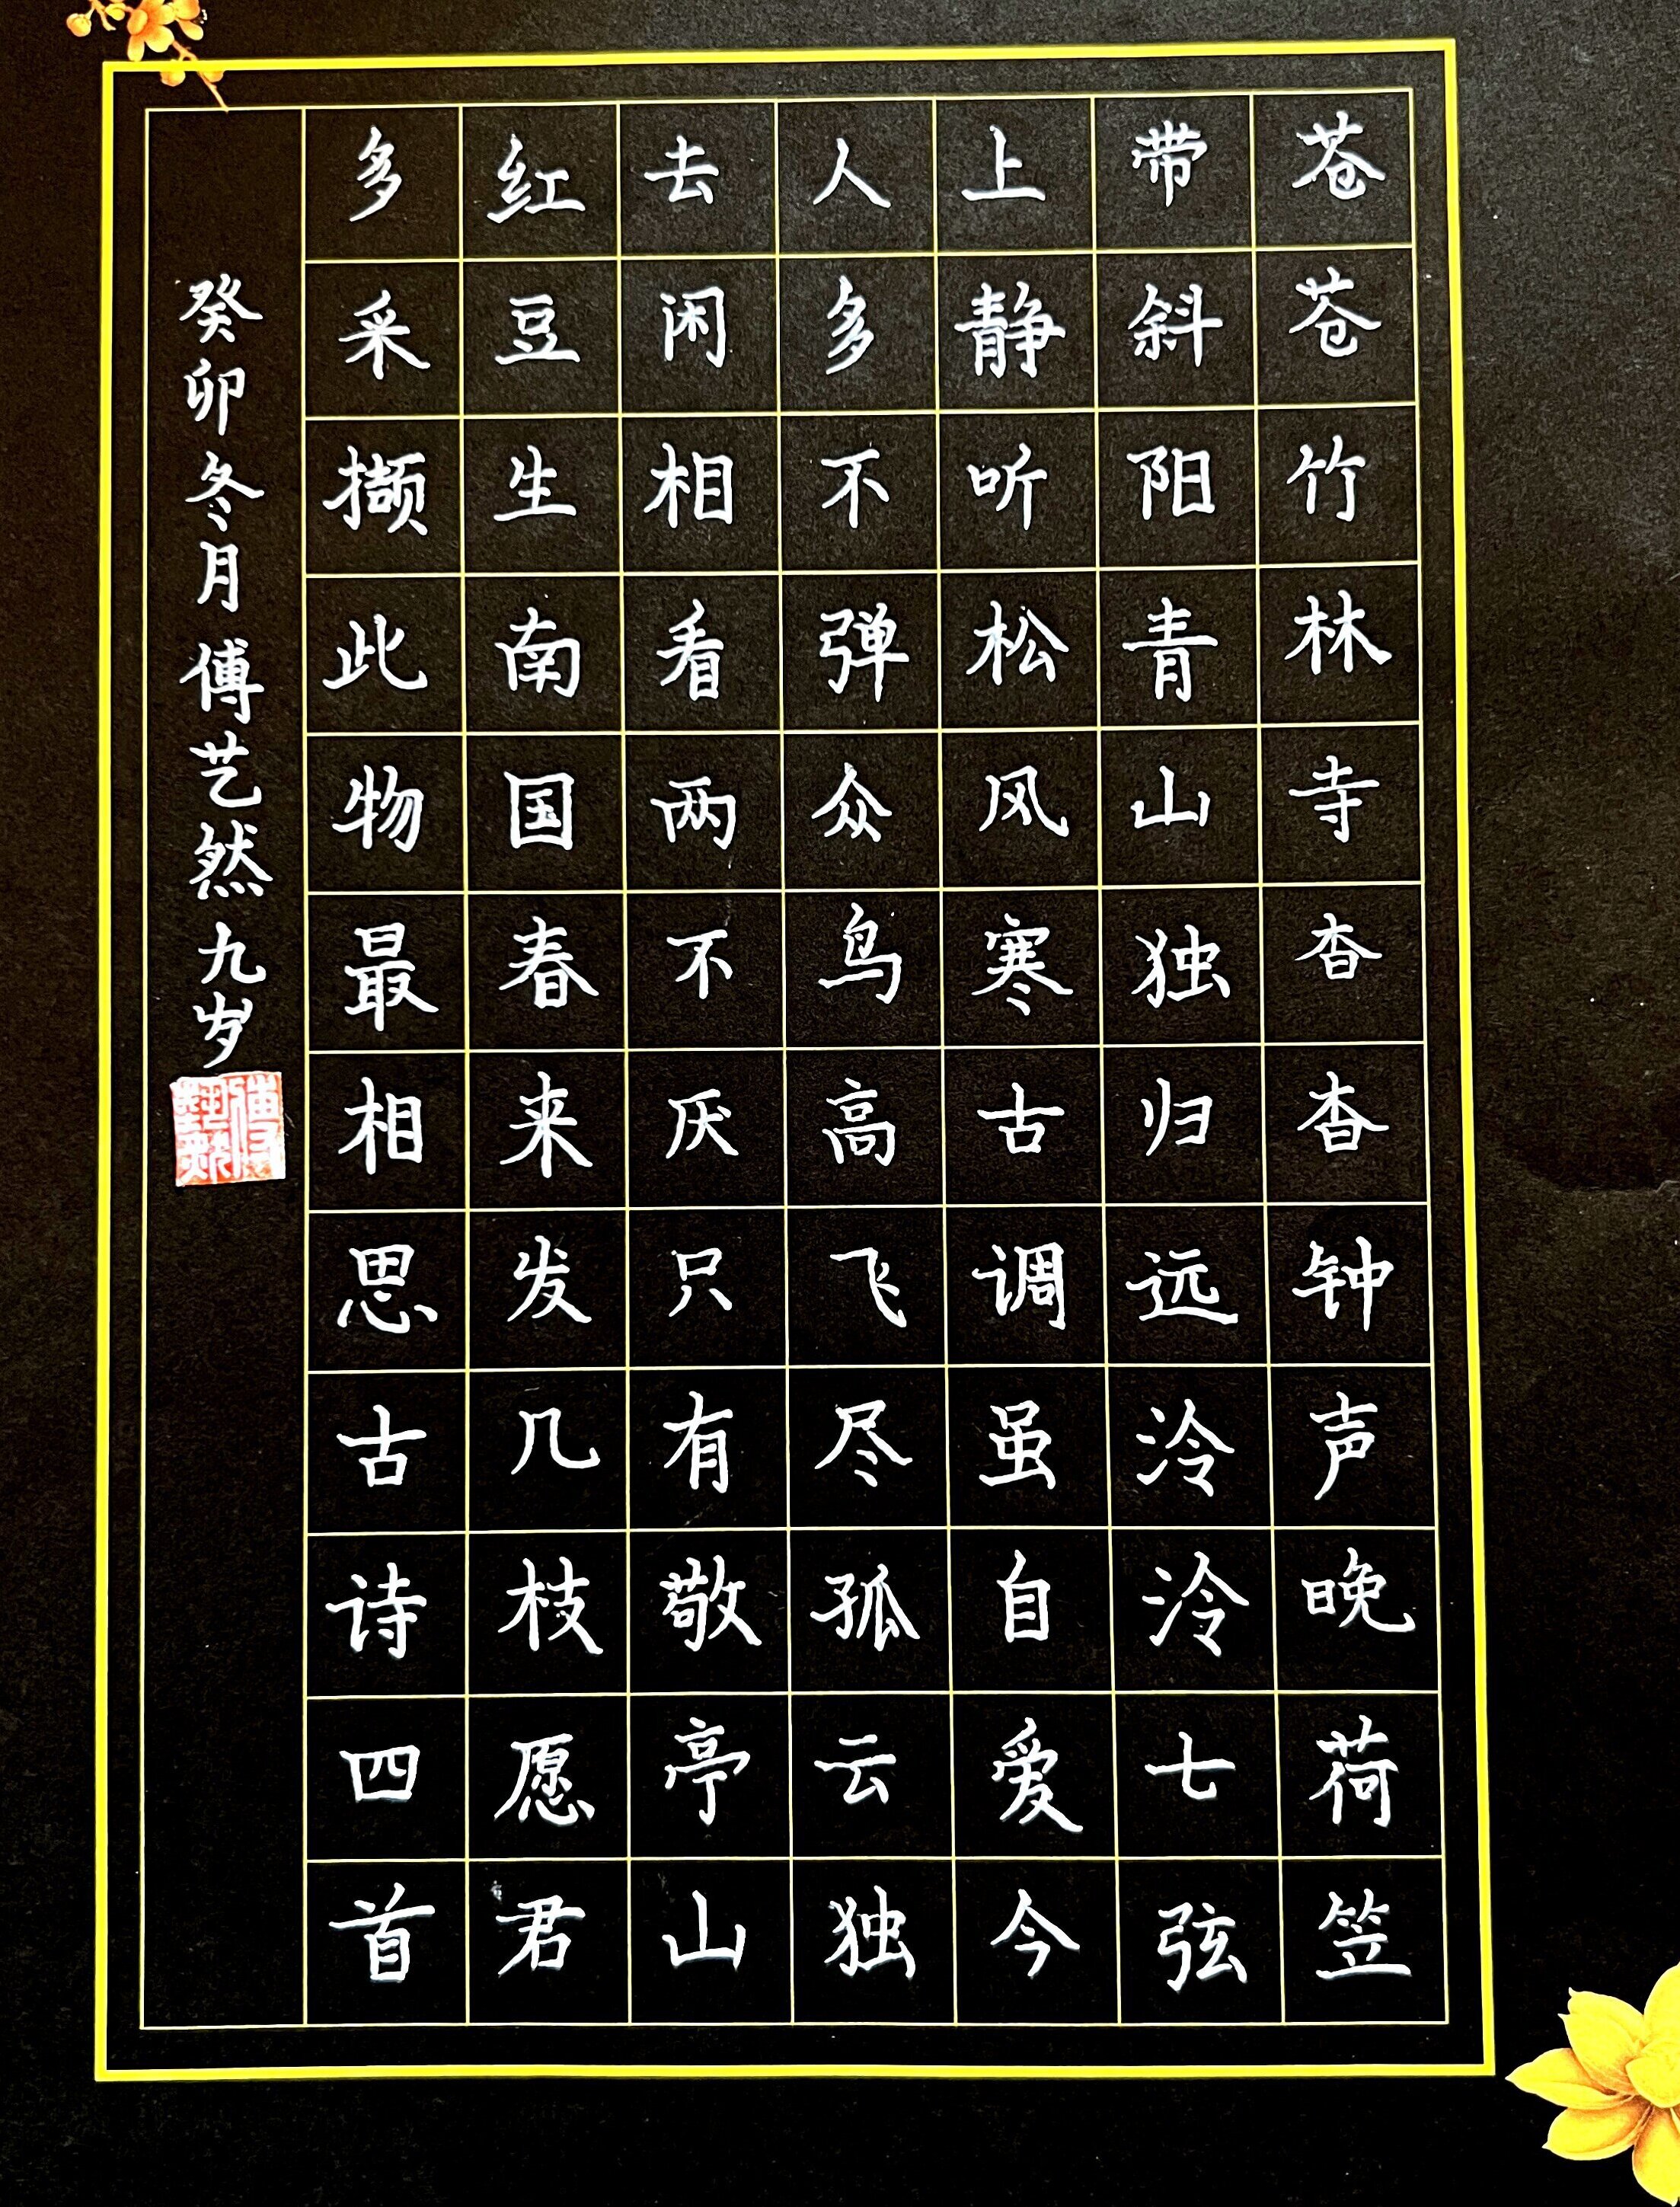 苍苍竹林寺杳杳钟声晚荷笠
带斜阳青山独归远泠泠七弦
上静听松风寒古调虽自爱今
人多不弹众鸟高飞尽孤云独
去闲相看两不厌只有敬亭山
红豆生南国春来发几枝愿君
多采撷此物最相思古诗四首
癸卯冬月傅艺然九岁